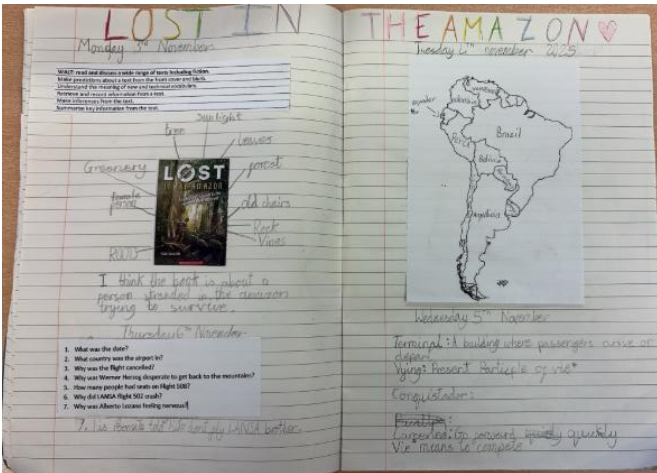 LOST IN
THE AMAZON
Monday 3rd November
WALT: read and discuss a wide range of texts including fiction.
Make predictions about a text from the front cover and blurb.
Understand the meaning of new and technical vocabulary.
Retrieve and record information from a text.
Make inferences from the text.
Summarise key information from the text.
Sunlight
tree
leaves
Greenery
forest
female
person
old chairs
Rock
Vines
Root
LOST
IN THE AMAZON
I think the book is about a
person stranded in the amazon
trying to survive.
Thursday 6th November
1. What was the date?
2. What country was the airport in?
3. Why was the flight cancelled?
4. Why was Werner Herzog desperate to get back to the mountains?
5. How many people had seats on Flight 508?
6. Why did LANSA flight 502 crash?
7. Why was Alberto Lozano feeling nervous?
7. told him don't fly LANSA
Tuesday 4th november 2025
Venezuela
Colombia
Brazil
Peru
Bolivia
Wednesday 5th November
Terminal: A building where passengers arrive or
depart
Vying: Present Participle of vie*
Conquistador:
Go forward quickly
Vie means to compete